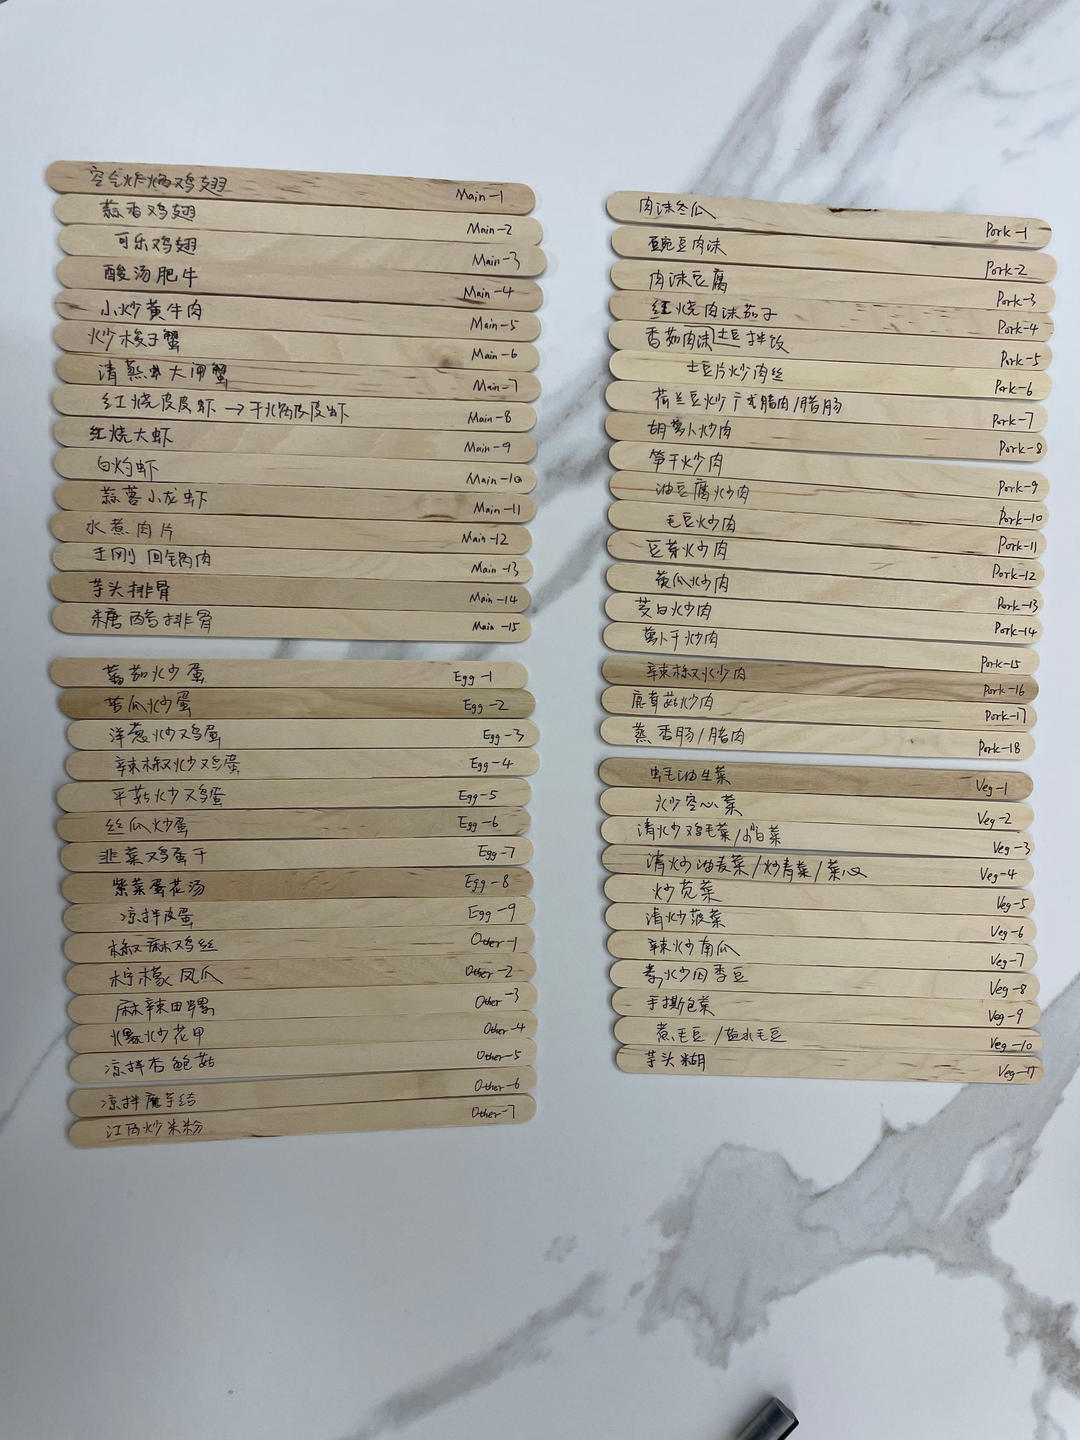 空气炸锅鸡翅 Main-1
蒜香鸡翅 Main-2
可乐鸡翅 Main-3
酸汤肥牛 Main-4
小炒黄牛肉 Main-5
炒梭子蟹 Main-6
清蒸大闸蟹 Main-7
红烧皮皮虾→干锅皮皮虾 Main-8
红烧大虾 Main-9
白灼虾 Main-10
蒜蓉小龙虾 Main-11
水煮肉片 Main-12
王刚回锅肉 Main-13
芋头排骨 Main-14
糖醋排骨 Main-15
蕃茄炒蛋 Egg-1
苦瓜炒蛋 Egg-2
洋葱炒鸡蛋 Egg-3
辣椒炒鸡蛋 Egg-4
平菇炒鸡蛋 Egg-5
丝瓜炒蛋 Egg-6
韭菜鸡蛋干 Egg-7
紫菜蛋花汤 Egg-8
凉拌皮蛋 Egg-9
椒麻鸡丝 Other-1
柠檬凤爪 Other-2
麻辣田螺 Other-3
爆炒花甲 Other-4
凉拌杏鲍菇 Other-5
凉拌魔芋结 Other-6
江西炒米粉 Other-7
肉沫冬瓜 Pork-1
豌豆肉沫 Pork-2
肉沫豆腐 Pork-3
红烧肉沫茄子 Pork-4
香菇肉沫土豆拌饭 Pork-5
土豆片炒肉丝 Pork-6
荷兰豆炒广式腊肉/腊肠 Pork-7
胡萝卜炒肉 Pork-8
笋干炒肉 Pork-9
油豆腐炒肉 Pork-10
毛豆炒肉 Pork-11
豆芽炒肉 Pork-12
黄瓜炒肉 Pork-13
茭白炒肉 Pork-14
萝卜干炒肉 Pork-15
辣椒炒肉 Pork-16
鹿茸菇炒肉 Pork-17
蒸香肠/腊肉 Pork-18
蚝油生菜 Veg-1
炒空心菜 Veg-2
清炒鸡毛菜/小白菜 Veg-3
清炒油麦菜/炒青菜/菜心 Veg-4
炒苋菜 Veg-5
清炒菠菜 Veg-6
辣炒南瓜 Veg-7
素炒四季豆 Veg-8
手撕包菜 Veg-9
煮毛豆/盐水毛豆 Veg-10
芋头糊 Veg-11